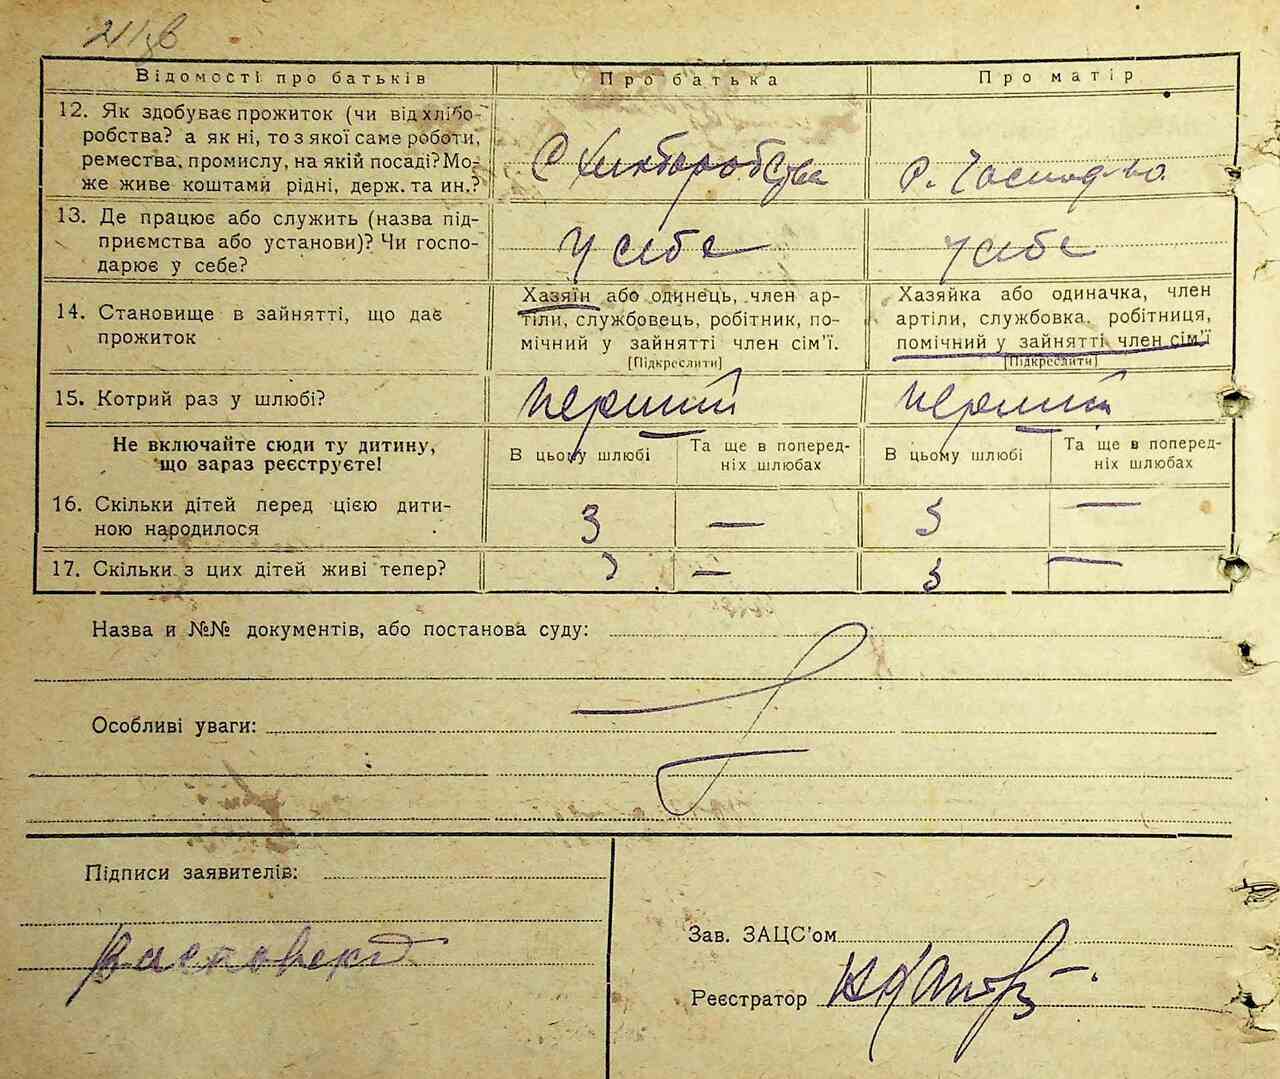 Відомості про батьків Про батька Про матір
12. Як здобуває прожиток (чи від хлібо-
робства? а як ні, то з якої саме роботи,
ремества, промислу, на якій посаді? Мо-
же живе коштами рідні, держ. та ин.?
С Хліборобства
13. Де працює або служить (назва під-
приємства або установи)? Чи госпо-
дарює у себе?
у себе у себе
14. Становище в зайнятті, що дає
прожиток
Хазяїн або одинець, член ар-
тіли, службовець, робітник, по-
мічний у зайнятті член сім'ї.
[Підкреслити]
Хазяйка або одиначка, член
артіли, службовка, робітниця,
помічний у зайнятті член сім'ї
[Підкреслити]
15. Котрий раз у шлюбі? перший перший
Не включайте сюди ту дитину,
що зараз реєструєте!
В цьому шлюбі
Та ще в поперед-
ніх шлюбах
В цьому шлюбі
Та ще в поперед-
ніх шлюбах
16. Скільки дітей перед цією дити-
ною народилося
3 — 3 —
17. Скільки з цих дітей живі тепер? 3 — 3 —
Назва и №№ документів, або постанова суду:
Особливі уваги:
Підписи заявителів:
Зав. ЗАЦС'ом
Реєстратор